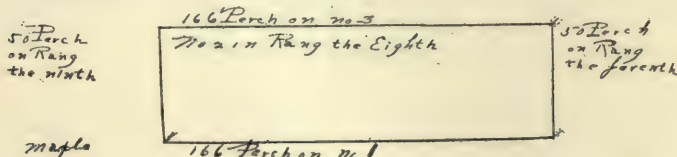 166 Perch on no 3
50 Perch
on Rang
the ninth
No 2 in Rang the Eighth
50 Perch
on Rang
the
maple
166 Perch on no 1